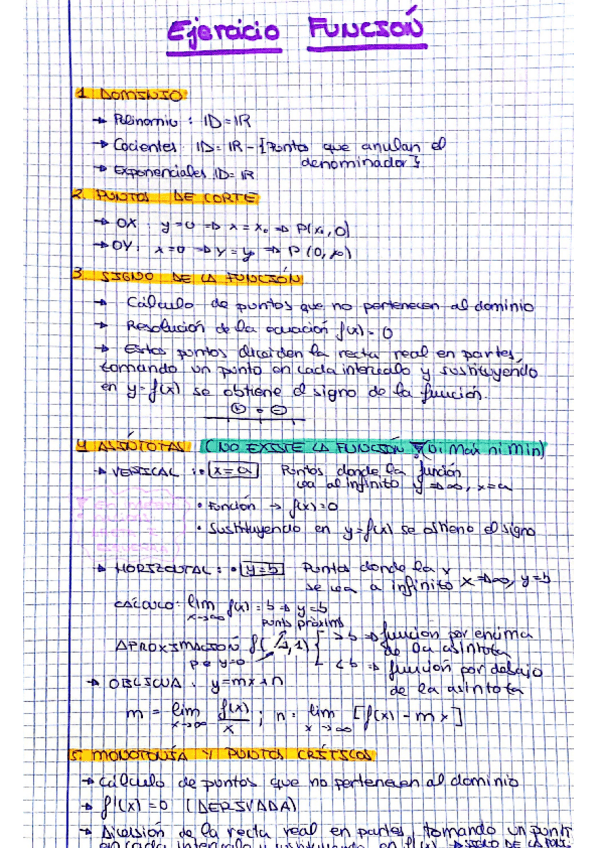 Ejercicio FUNCIÓN
1. DOMINIO
→ Polinomio : ID=IR
→ Cocientes ID= IR-{Puntos que anulan el
denominador}
→ Exponenciales ID= IR
2. PUNTOS DE CORTE
→ OX : y=0 ⇒ x=x₀ ⇒ P(x₀,0)
→ OY: x=0 ⇒ y=y ⇒ P(0,
3. SIGNO DE LA FUNCIÓN
→ Cálculo de puntos que no pertenecen al dominio
→ Resolución de la ecuación f(x)=0
→ Estos puntos dividen la recta real en partes,
tomando un punto en cada intervalo y sustituyendo
en y=f(x) se obtiene el signo de la función.
4 ASÍNTOTAS (NO EXISTE LA FUNCIÓN (ni Max ni Min)
→ VERTICAL : • x=a Puntos donde la función
va al infinito y→∞, x=a
• Función → f(x)=0
• Sustituyendo en y=f(x) se obtiene el signo
→ HORIZONTAL : • y=b Puntos donde la x
se va a infinito x→∞, y=b
CÁLCULO: lim x→∞ f(x)=b ⇒ y=b
punto próximo
APROXIMACIÓN >b ⇒ función por encima
de la asíntota
<b ⇒ función por debajo
de la asíntota
→ OBLICUA : y=mx+n
m = lim x→∞ f(x)/x ; n = lim x→∞ [f(x)-mx]
5. MONOTONÍA Y PUNTOS CRÍTICOS
→ Cálculo de puntos que no pertenecen al dominio
→ f'(x)=0 (DERIVADA)
→ División de la recta real en partes, tomando un punto
en cada intervalo y sustituyendo en